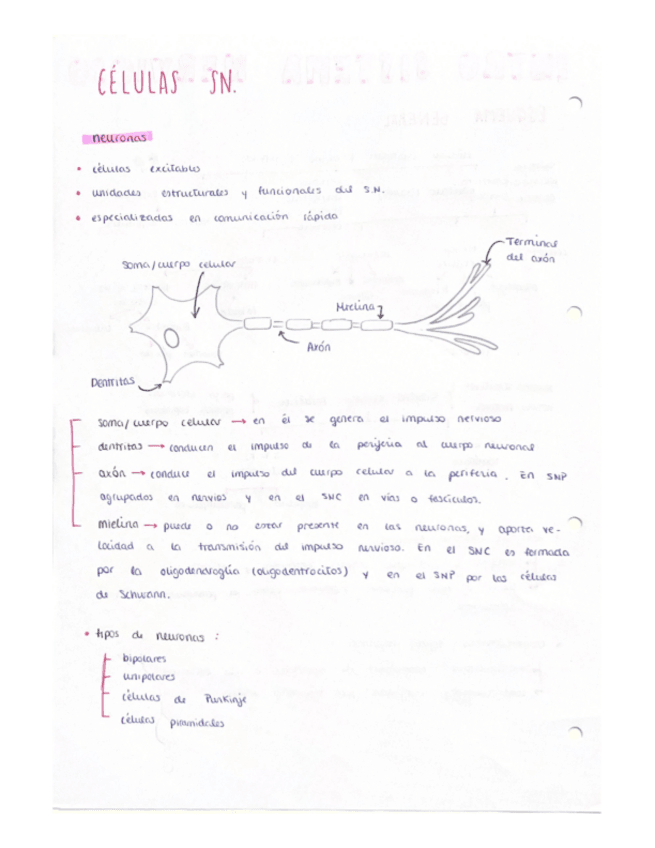 CÉLULAS SN.
neuronas
• células excitables
• unidades estructurales y funcionales del S.N.
• especializadas en comunicación rápida
Terminas
del axón
Soma/cuerpo celular
Mielina
Axón
Dentritas
soma/cuerpo celular → en él se genera el impulso nervioso
dentritas → conducen el impulso de la periferia al cuerpo neuronal
axón → conduce el impulso del cuerpo celular a la periferia. En SNP
agrupados en nervios y en el SNC en vías o fascículos.
mielina → puede o no estar presente en las neuronas, y aporta ve-
locidad a la transmisión del impulso nervioso. En el SNC es formada
por la oligodendroglía (oligodentrocitos) y en el SNP por las células
de Schwann.
• tipos de neuronas :
bipolares
unipolares
células de Purkinje
células piramidales